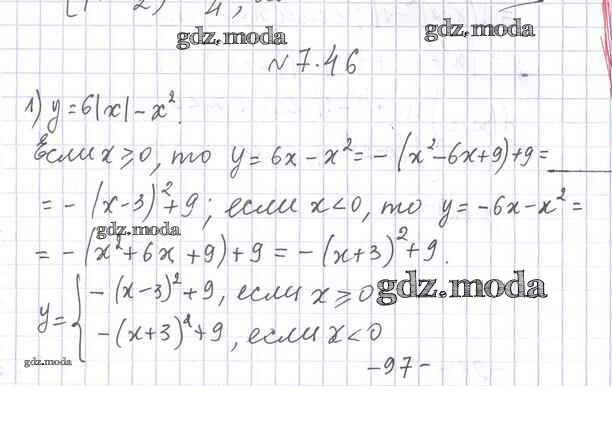 gdz.moda gdz.moda
№ 7.46
1) y = 6|x| - x².
Если x ≥ 0, то y = 6x - x² = -(x² - 6x + 9) + 9 =
= -(x - 3)² + 9; если x < 0, то y = -6x - x² =
gdz.moda
= -(x² + 6x + 9) + 9 = -(x + 3)² + 9.
gdz.moda
y = { -(x - 3)² + 9, если x ≥ 0
-(x + 3)² + 9, если x < 0
gdz.moda
-97-